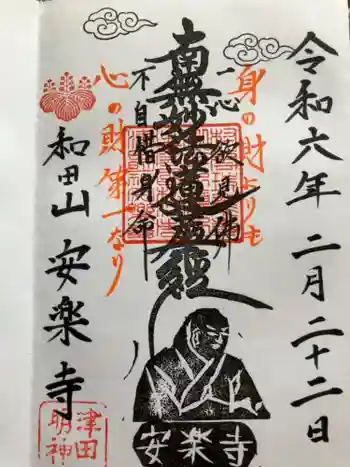 令和六年 二月二十二日
身の財よりも
一心欲見佛
南無妙法蓮華経
不自惜身命
心の財第一なり
和田山 安楽寺
津田
明神
安楽寺